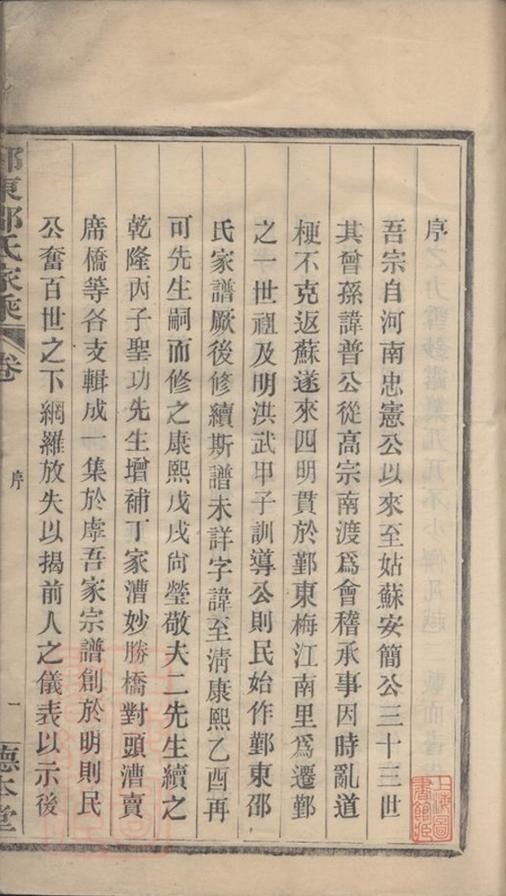 序
吾宗自河南忠憲公以來至姑蘇安簡公三十三世
其曾孫諱普公從高宗南渡爲會稽承事因時亂道
梗不克返蘇遂來四明貫於鄞東梅江南里爲遷鄞
之一世祖及明洪武甲子訓導公則民始作鄞東邵
氏家譜厥後修續斯譜未詳字諱至淸康熙乙酉再
可先生嗣而修之康熙戊戌尙瑩敬夫二先生續之
乾隆丙子聖功先生增補丁家漕妙勝橋對頭漕賣
席橋等各支輯成一集於虖吾家宗譜創於明則民
公奮百世之下網羅放失以揭前人之儀表以示後
東邵氏家乘
卷
序
一
德本堂
上海圖
書館藏